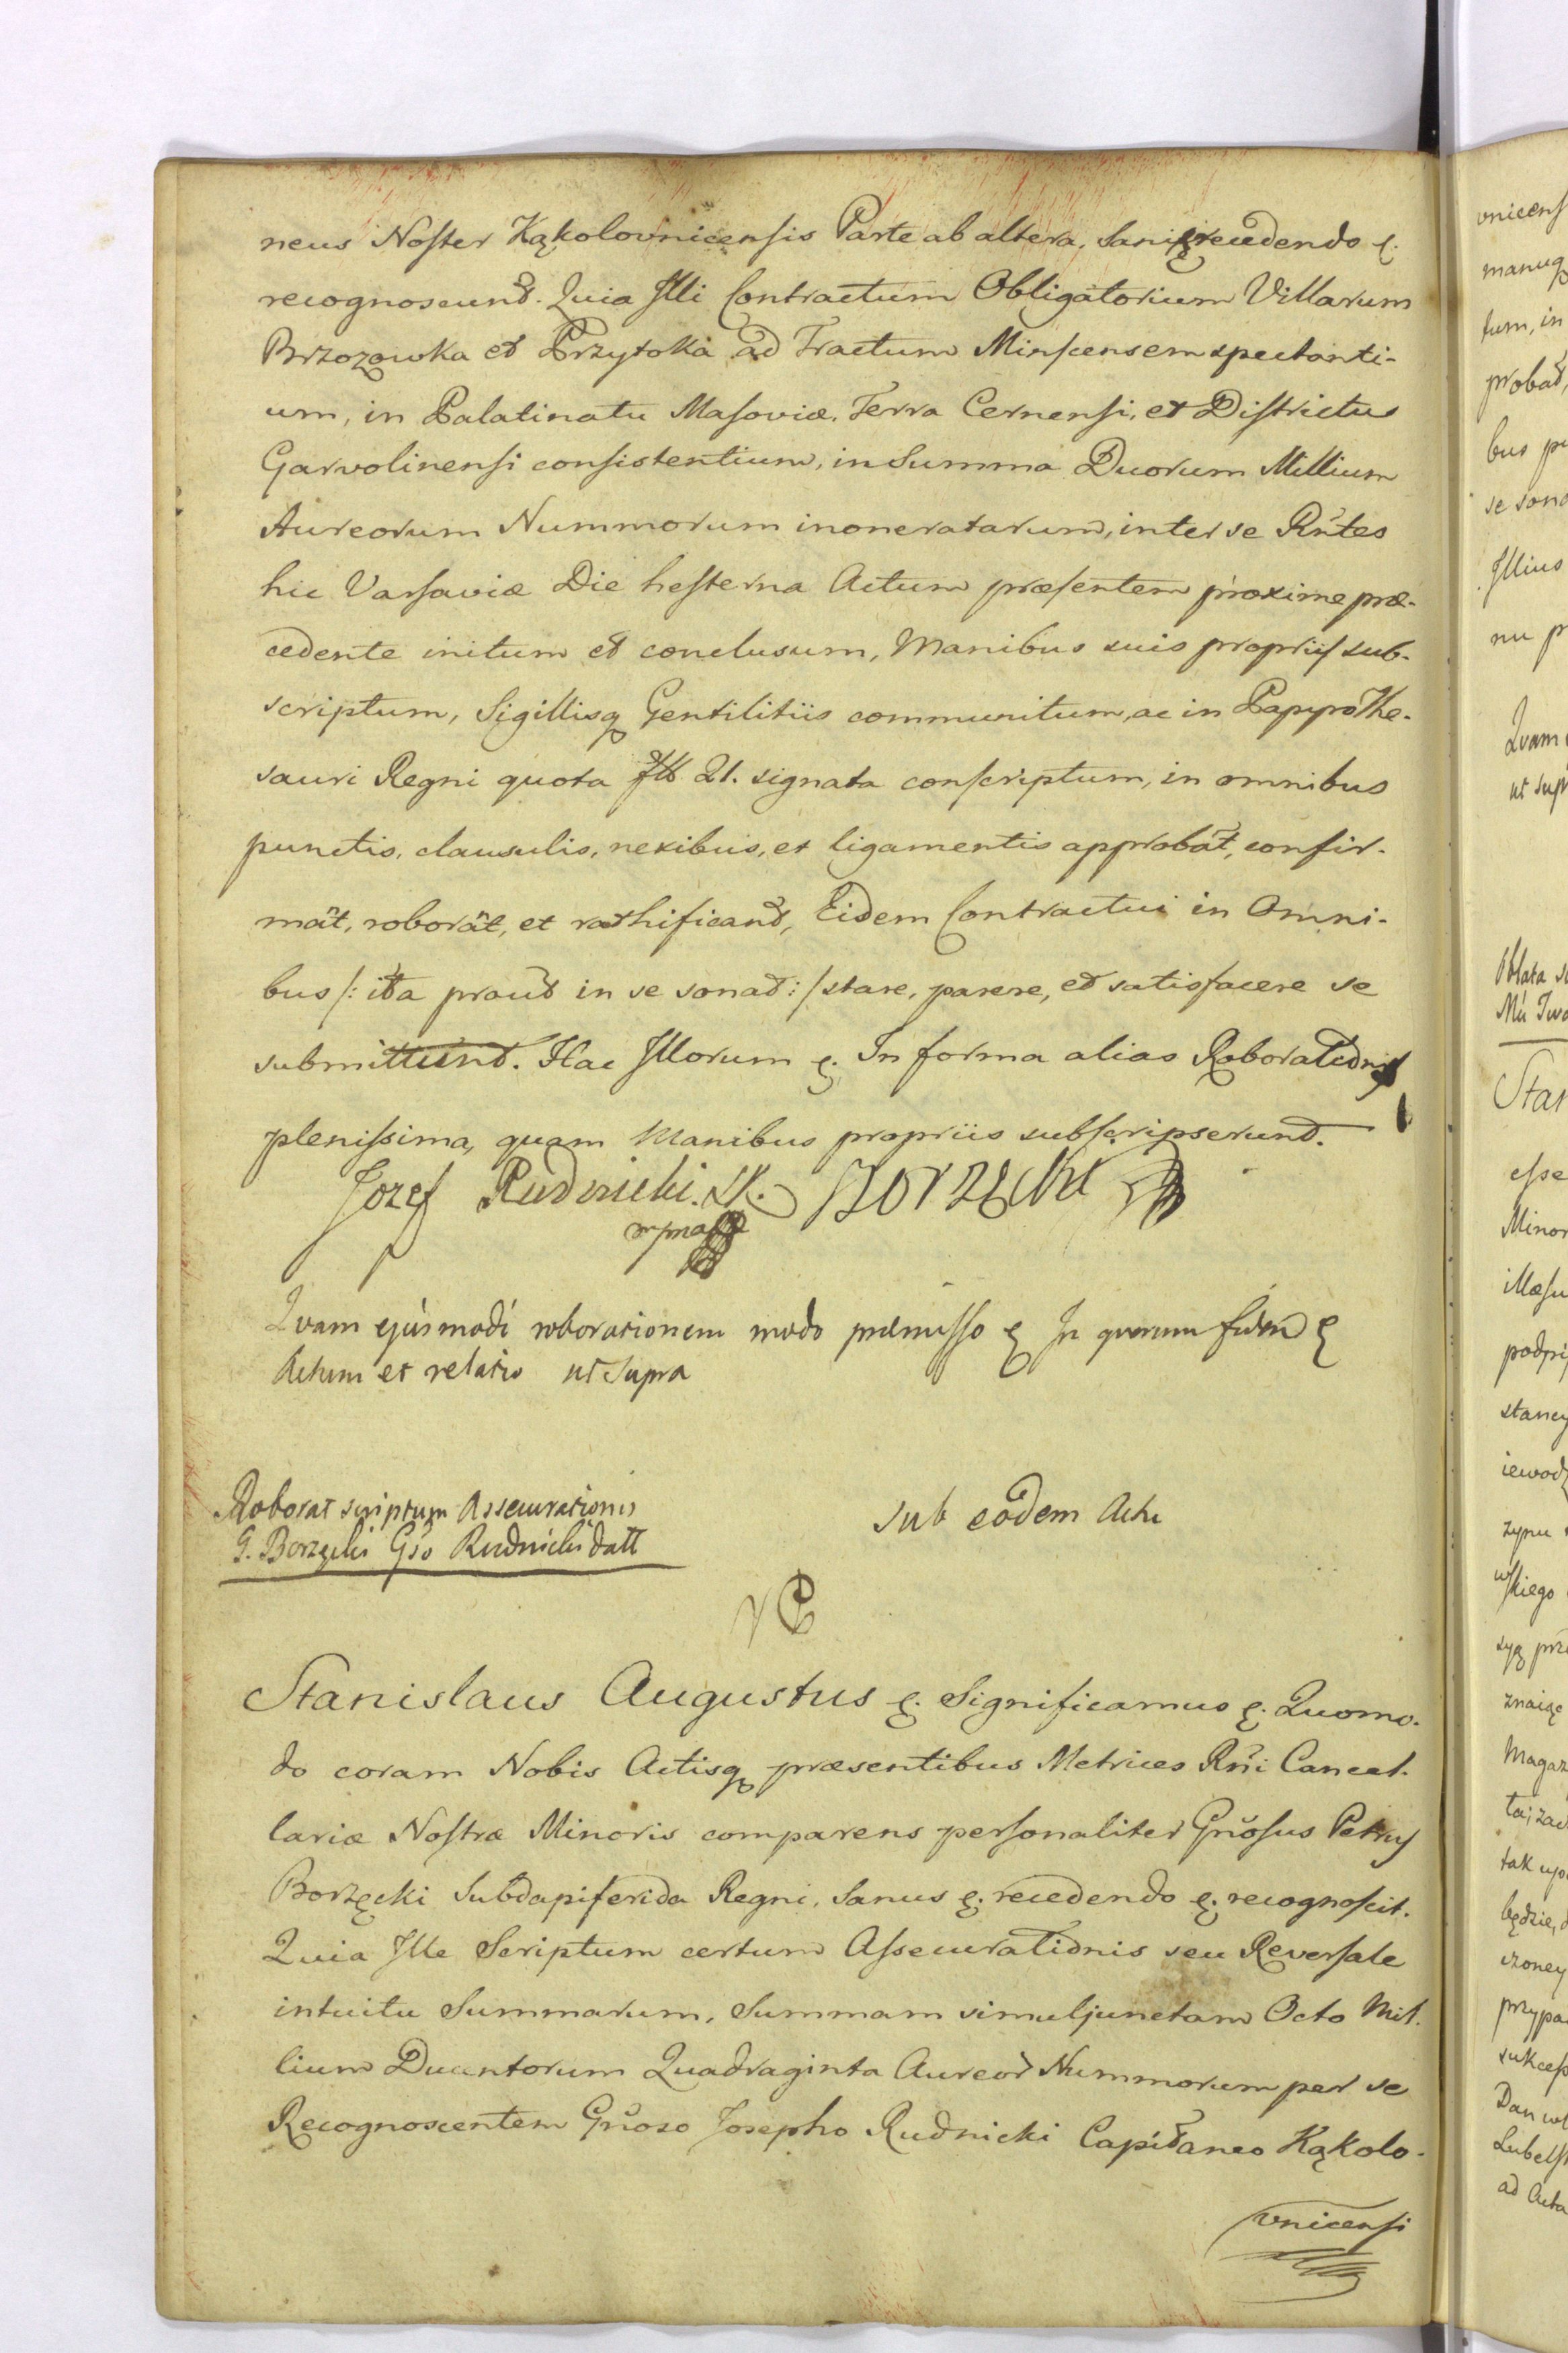 neus Noster Kąkolovnicensis Parte ab altera, Sani ꝛ recedendo ꝛ.
recognoscunt. Quia Illi Contractum Obligatorium Villarum
Brzozowka et Przytoka ad Tractum Minscensem spectanti-
um, in Palatinatu Masoviæ, Terra Cernensi, et Districtus
Garvolinensi consistentium, in Summa Duorum Millium
Aureorum Nummorum inoneratarum, inter se Rñtes
hic Varsaviæ Die hesterna Actum præsentem proxime præ-
cedente initum et conclusum, Manibus suis propriis sub-
scriptum, Sigillisq Gentilitiis communitum, ac in Papyro The-
sauri Regni quota 21. signata conscriptum, in omnibus
punctis, clausulis, nexibus, et ligamentis approbãt, confir-
mãt, roborãt, et rathificant, Eidem Contractui in Omni-
bus /: ita prout in se sonat :/ stare, parere, et satisfacere se
submittunt. Hac Illorum ꝛ. In forma alias Roborationis
plenissima, quam Manibus propriis subscripserunt.
Jozef Rudnicki. SK. Borzęcki
mpria
Quam ejusmodi roborationem modo præmisso ꝛ In quorum fidem ꝛ
Actum et relatio ut Supra
Roborat scriptum Assecurationis
G. Borzęcki Gso Rudnicki datt
Sub eodem Actu
Stanislaus Augustus ꝛ. Significamus ꝛ. Quomo-
do coram Nobis Actisq præsentibus Metrices Rñi Cancel-
lariæ Nostræ Minoris comparens personaliter Gñosus Petrus
Borzęcki Subdapiferida Regni, Sanus ꝛ. recedendo ꝛ. recognoscit.
Quia Ille Scriptum certum Assecurationis seu Reversale
intuitu Summarum, Summam simul junctam Octo Mil-
lium Ducentorum Quadraginta Aureor Nummorum per se
Recognoscentem Gñoso Josepho Rudnicki Capitaneo Kąkolo-
vnicensi
vnicens
manuq
tum, in
probat,
bus
se sona
Illius
nu
Quam
ut sup
Oblata
Stan
esse
Minor
illæsu
podpi
stancy
iewodz
zynu
wskiego
syą prz
znaiąc
Magaz
ta; zaw
tak
będzie,
czoney
przypa
sukcess
Dan
Lubelsk
ad Acta